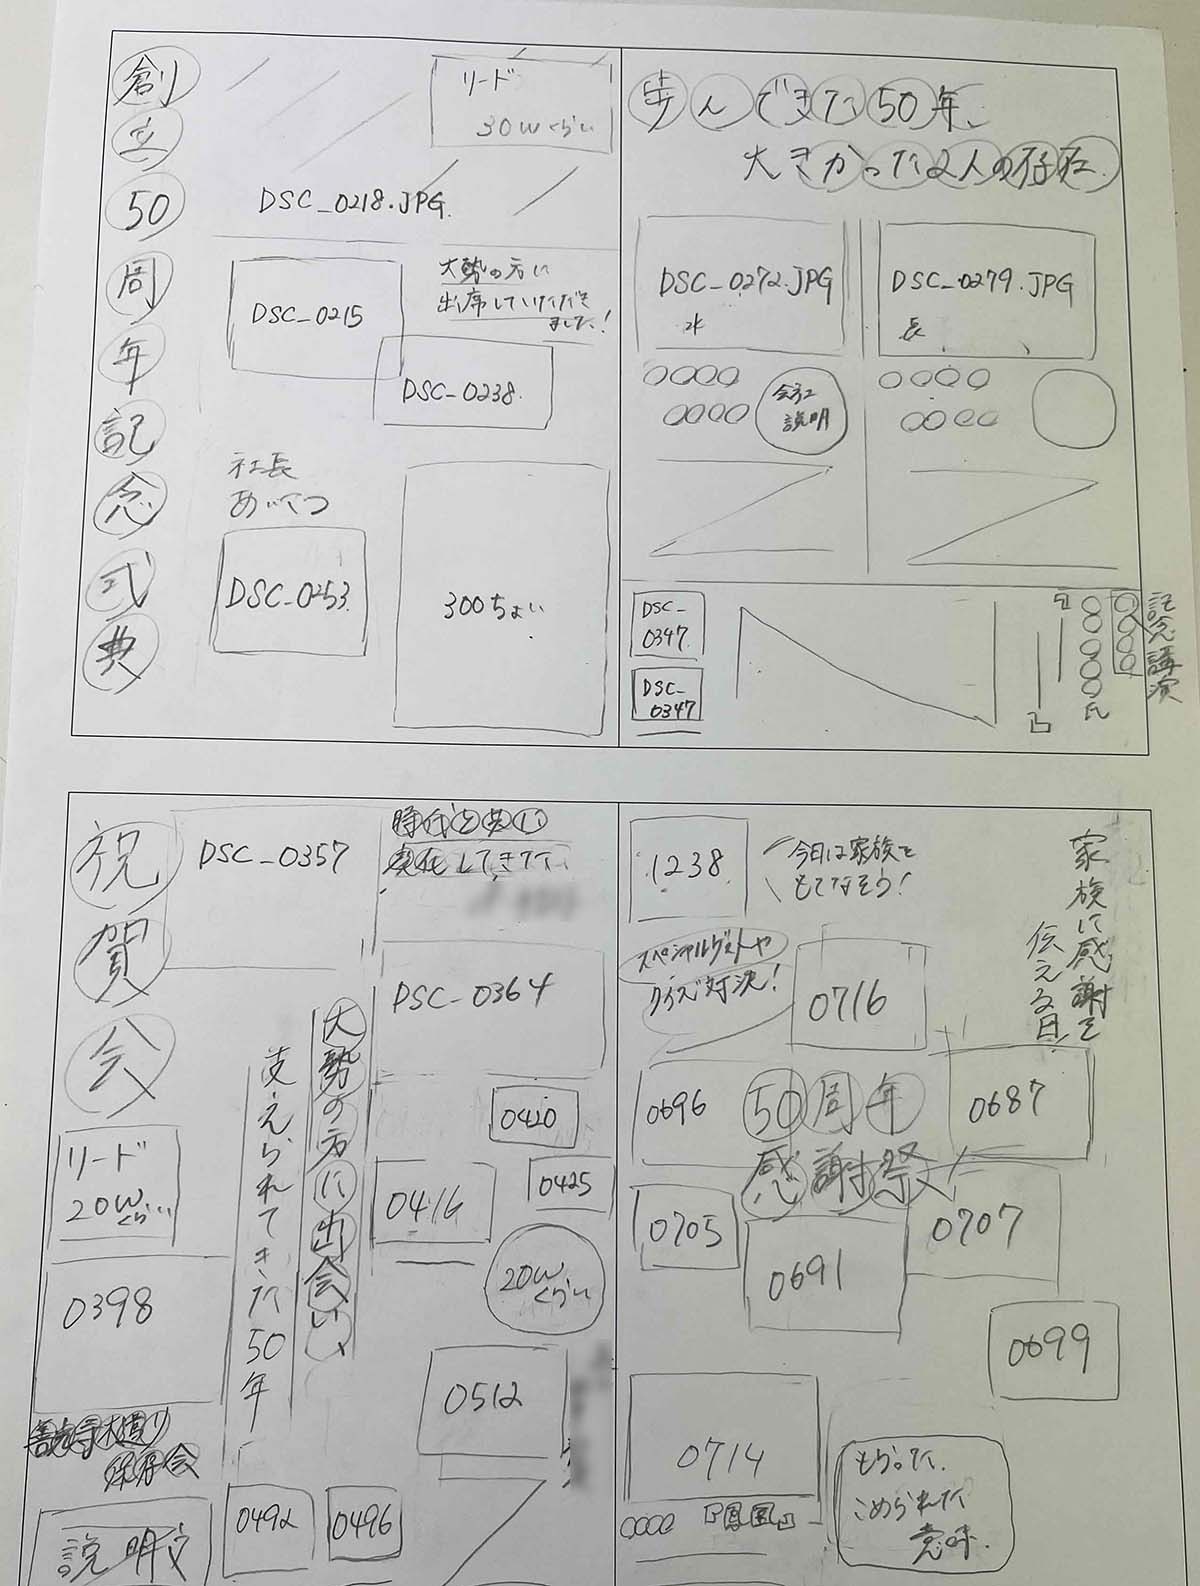 創立50周年記念式典
リード
30Wくらい
DSC_0218.JPG
DSC_0215
大勢の方に
出席していただき
ました!
DSC_0238.
社長
あいさつ
DSC_0253
300ちょい
歩んできた50年、
大きかった2人の存在
DSC_0272.JPG
水
DSC_0279.JPG
長
説明
DSC_
0347
DSC_
0347
氏
記念講演
祝賀会
DSC_0357
時代と共に
変化してきた
DSC_0364
大勢の方に出会い、
支えられてきた50年
リード
20Wくらい
0398
0420
0416
0425
20Wくらい
0512
保存会
説明文
0492
0496
1238
今日は家族を
もてなそう!
家族に感謝を
伝える日!
スペシャルゲストや
クイズ対決!
0716
0696
50周年
感謝祭
0687
0705
0691
0707
0699
0714
「鳳凰」
もらった、
こめられた
意味.